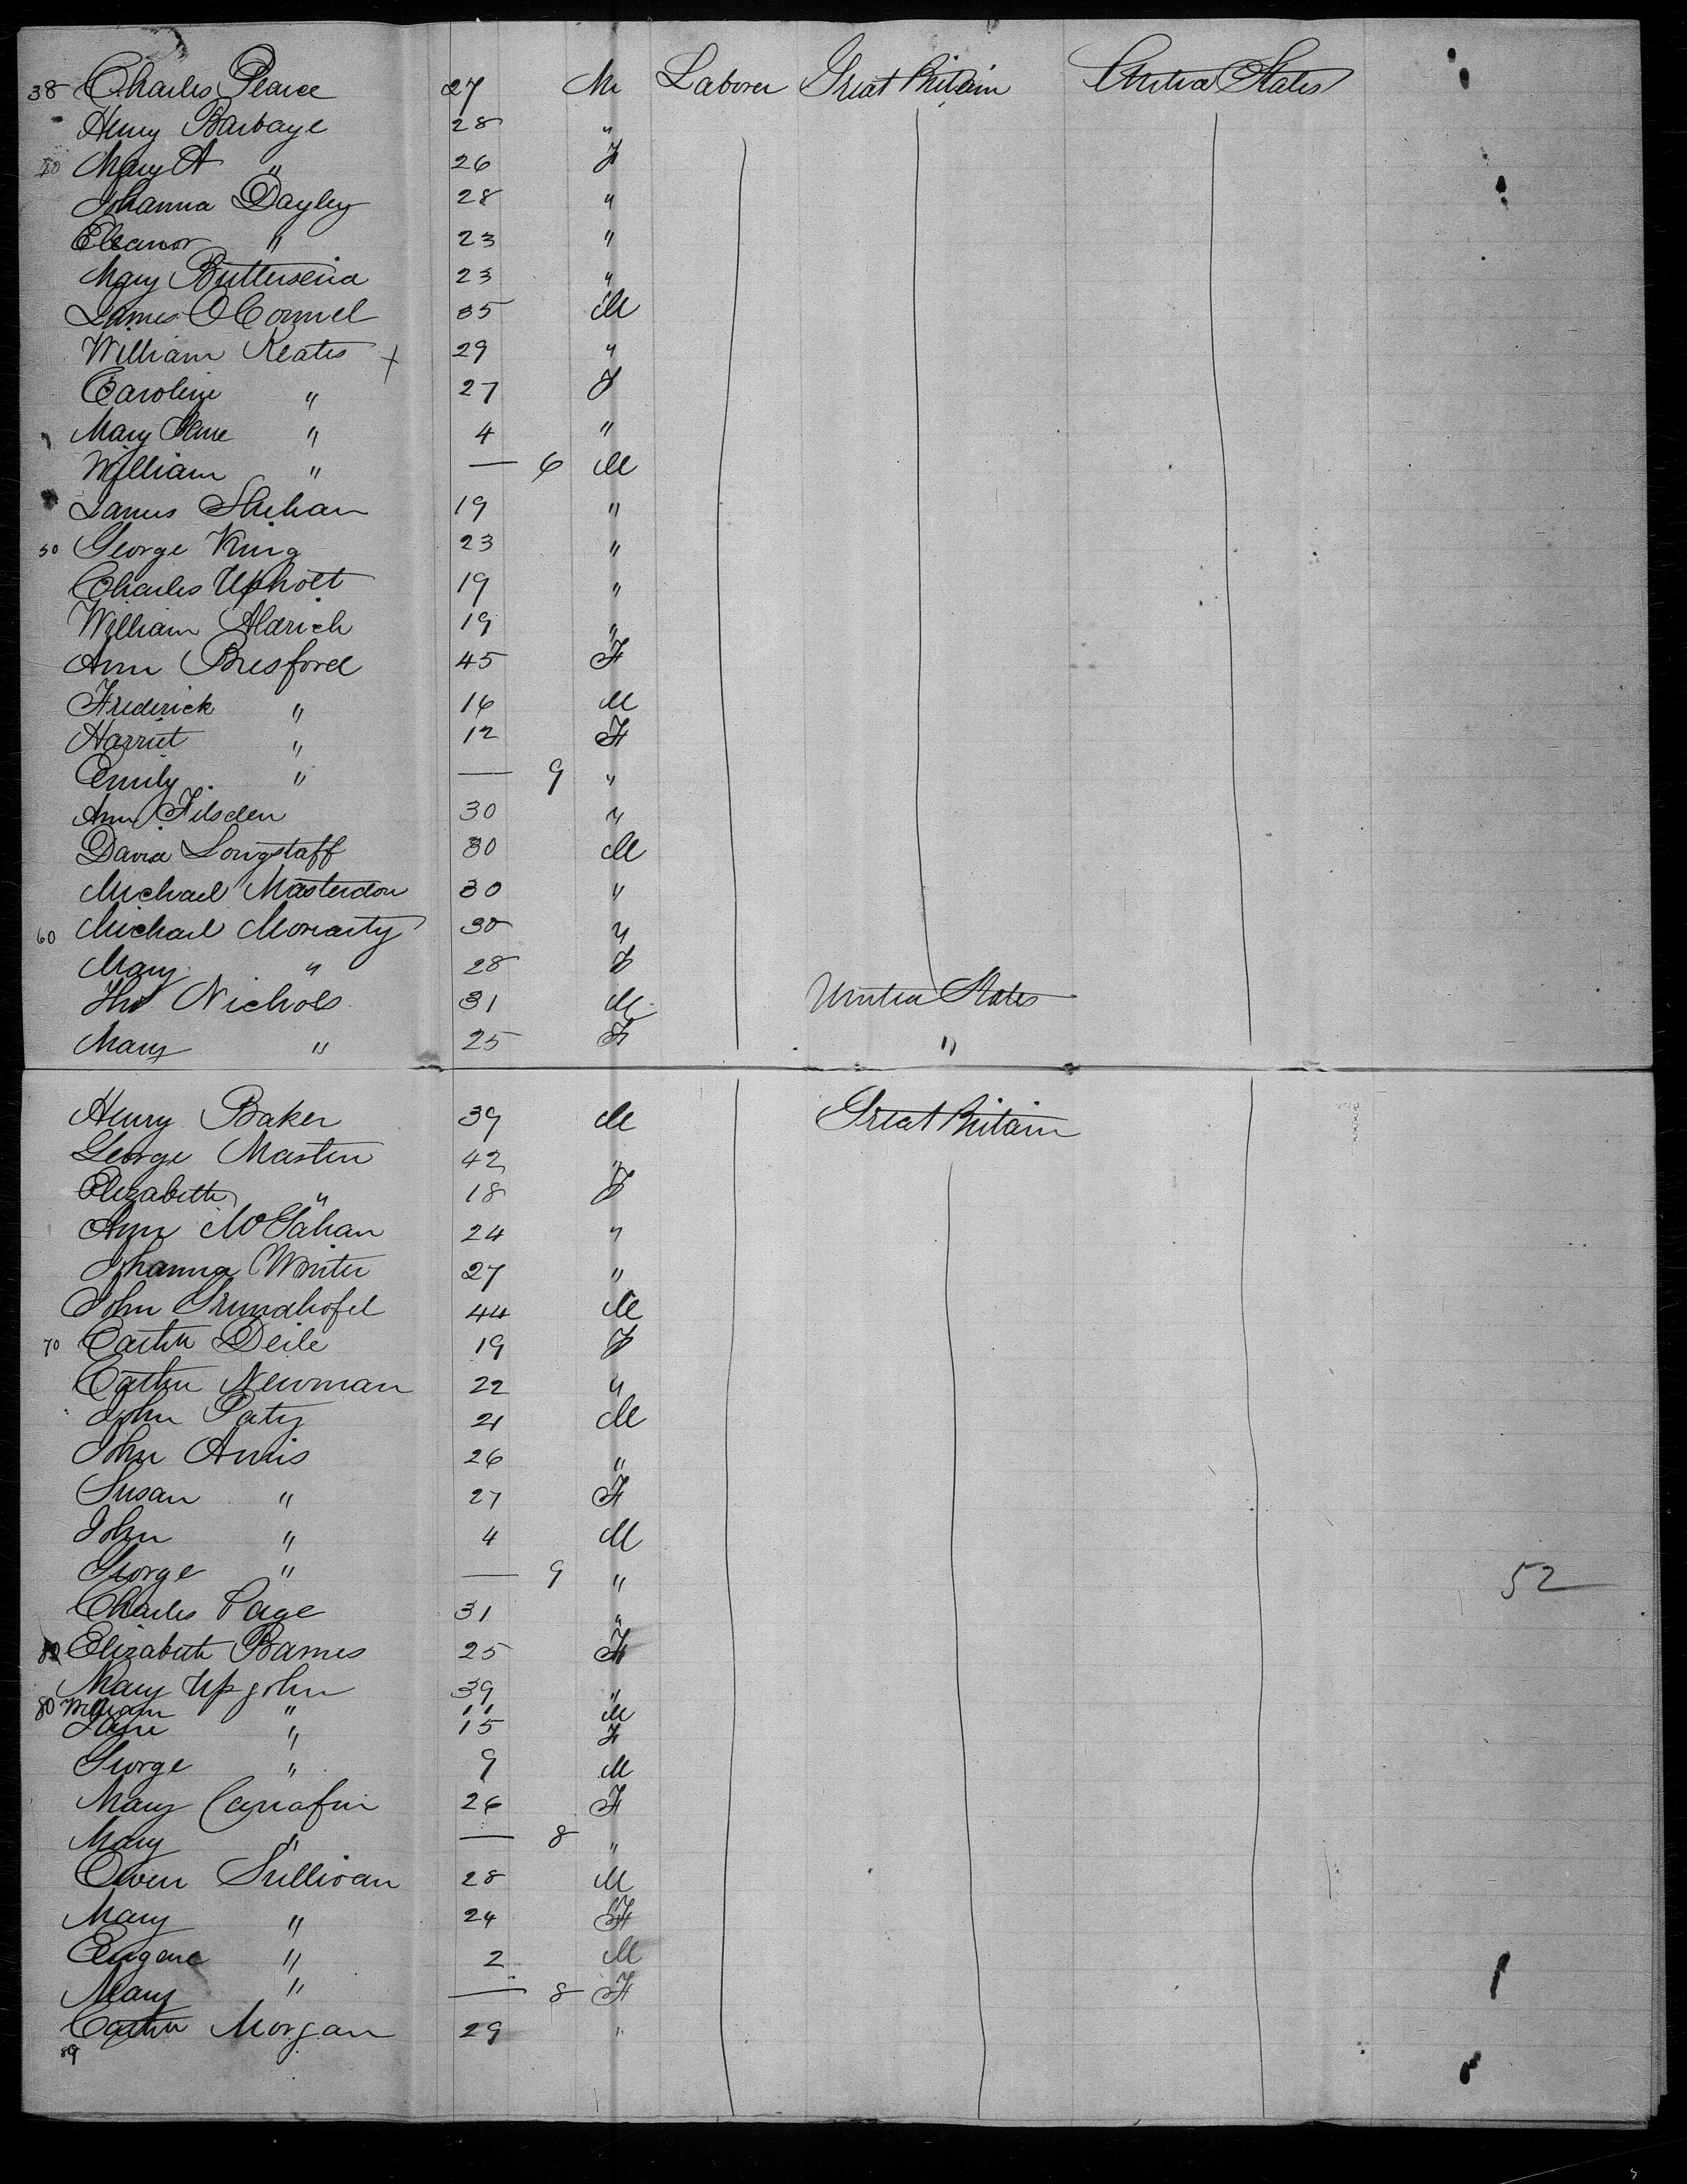 38 Charles Pearce 27 M Laborer Great Britain United States
Henry Barbaye 28 "
40 Mary A " 26 F
Johanna Dayley 28 "
Eleanor " 23 "
Mary 23 "
James OConnel 35 M
William Keates + 29 "
Caroline " 27 F
Mary Jane " 4 "
William " — 6 M
James Shehan 19 "
50 George King 23 "
Charles Upholt 19 "
William Aldrich 19 "
Ann Bresford 45 F
Frederick " 16 M
Harriet " 12 F
Emily " — 9 "
Ann Filsden 30 "
David Longstaff 30 M
Michael Masterdon 30 "
60 Michael Moriarty 30 "
Mary " 28 F
Thos Nichols 31 M United States
Mary " 25 F "
Henry Baker 39 M Great Britain
George Masten 42 "
Elizabeth " 18 F
Ann McGahan 24 "
Johanna Winter 27 "
John Grundhofel 44 M
70 Cathn Deile 19 F
Cathn Newman 22 "
John Paty 21 M
John Annis 26 "
Susan " 27 F
John " 4 M
George " — 9 " 52
Charles Page 31 "
Elizabeth Barnes 25 F
Mary Upjohn 39 "
80 William " 11 M
Jane " 15 F
George " 9 M
Mary 26 F
Mary " — 8 "
Owen Sullivan 28 M
Mary " 24 F
Eugene " 2 M
Mary " — 8 F
Cathn Morgan 29 "
89